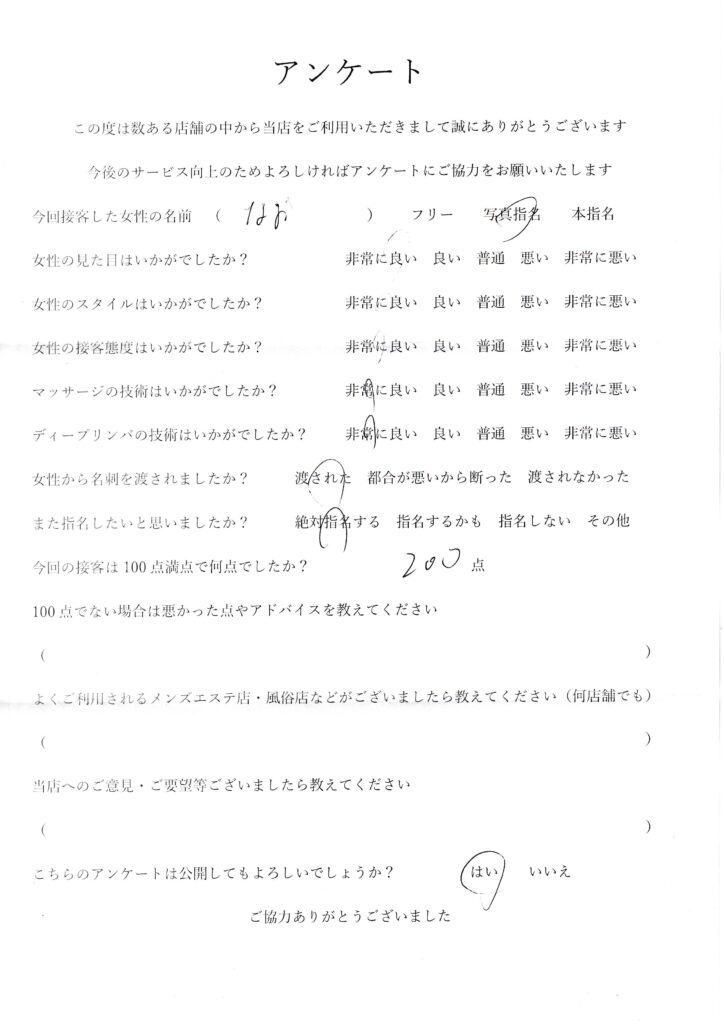 アンケート
この度は数ある店舗の中から当店をご利用いただきまして誠にありがとうございます
今後のサービス向上のためよろしければアンケートにご協力をお願いいたします
今回接客した女性の名前 （ なお ） フリー 写真指名 本指名
女性の見た目はいかがでしたか？ 非常に良い 良い 普通 悪い 非常に悪い
女性のスタイルはいかがでしたか？ 非常に良い 良い 普通 悪い 非常に悪い
女性の接客態度はいかがでしたか？ 非常に良い 良い 普通 悪い 非常に悪い
マッサージの技術はいかがでしたか？ 非常に良い 良い 普通 悪い 非常に悪い
ディープリンパの技術はいかがでしたか？ 非常に良い 良い 普通 悪い 非常に悪い
女性から名刺を渡されましたか？ 渡された 都合が悪いから断った 渡されなかった
また指名したいと思いましたか？ 絶対指名する 指名するかも 指名しない その他
今回の接客は 100 点満点で何点でしたか？ 200 点
100 点でない場合は悪かった点やアドバイスを教えてください
（ ）
よくご利用されるメンズエステ店・風俗店などがございましたら教えてください（何店舗でも）
（ ）
当店へのご意見・ご要望等ございましたら教えてください
（ ）
こちらのアンケートは公開してもよろしいでしょうか？ はい いいえ
ご協力ありがとうございました